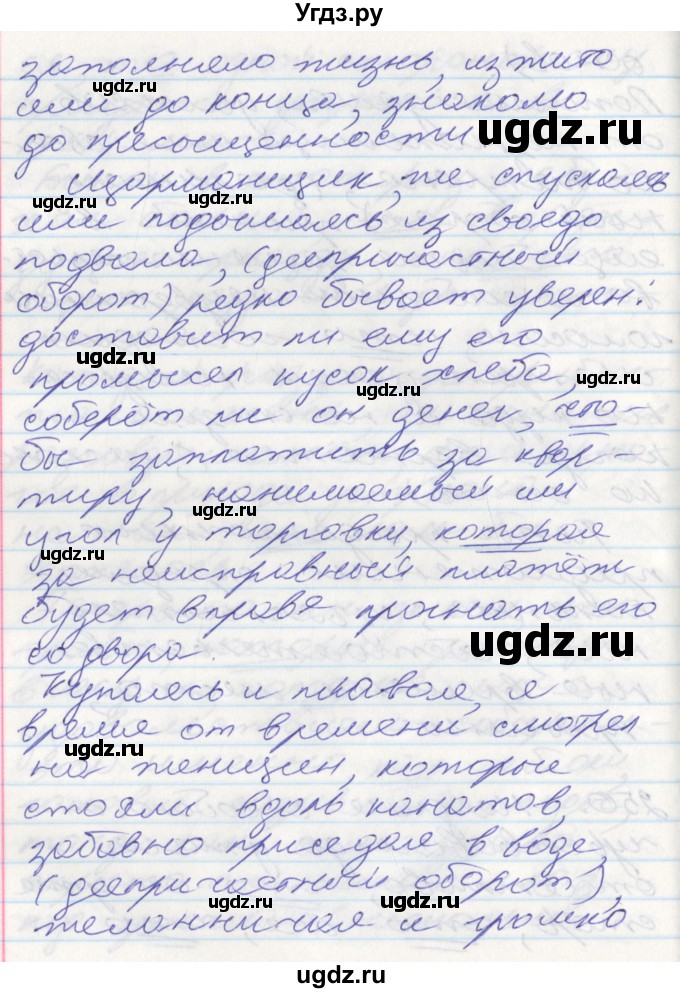 Угдз.ру
заполняло жизнь, изжито
ими до конца, знакомо
до пресыщенности.
ugdz.ru
Шарманщик, же спускаясь
ugdz.ru ugdz.ru
или поднимаясь из своего
подвала, (деепричастный
ugdz.ru
оборот) редко бывает уверен:
ugdz.ru
доставит ли ему его
ugdz.ru
промысел кусок хлеба,
ugdz.ru
соберёт ли он денег, что-
бы заплатить за квар-
тиру, нанимаемый им
ugdz.ru
угол у торговки, которая
за неисправный платёж
будет вправе прогнать его
ugdz.ru
со двора.
Купаясь и плавая, я
время от времени смотрел
ugdz.ru
на женщин, которые
стояли вдоль канатов,
ugdz.ru
забавно приседая в воде,
(деепричастный оборот),
ugdz.ru ugdz.ru
жеманничая и громко
ugdz.ru